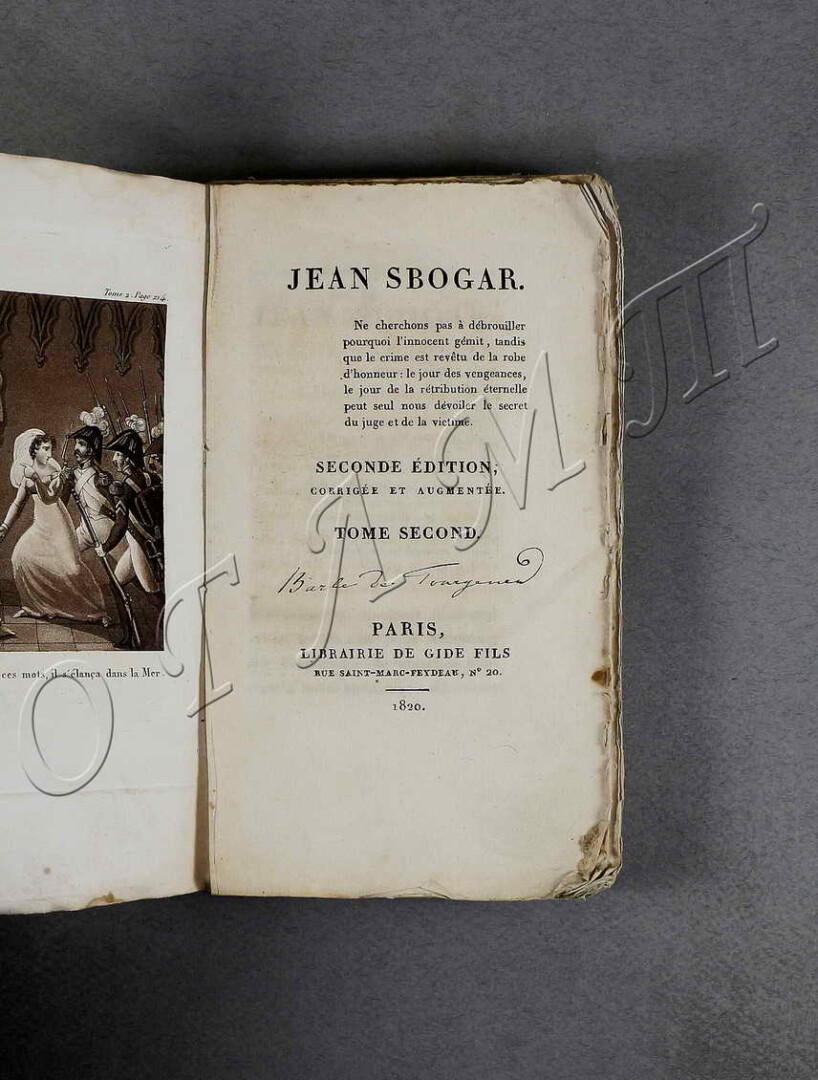 Tome 2. Page 214.
ces mots, il s'élança dans la Mer.
JEAN SBOGAR.
Ne cherchons pas à débrouiller
pourquoi l'innocent gémit, tandis
que le crime est revêtu de la robe
d'honneur : le jour des vengeances,
le jour de la rétribution éternelle
peut seul nous dévoiler le secret
du juge et de la victime.
SECONDE ÉDITION,
CORRIGÉE ET AUGMENTÉE.
TOME SECOND.
Barbe de Tourgeneu
PARIS,
LIBRAIRIE DE GIDE FILS
RUE SAINT-MARC-FEYDEAU, N° 20.
1820.